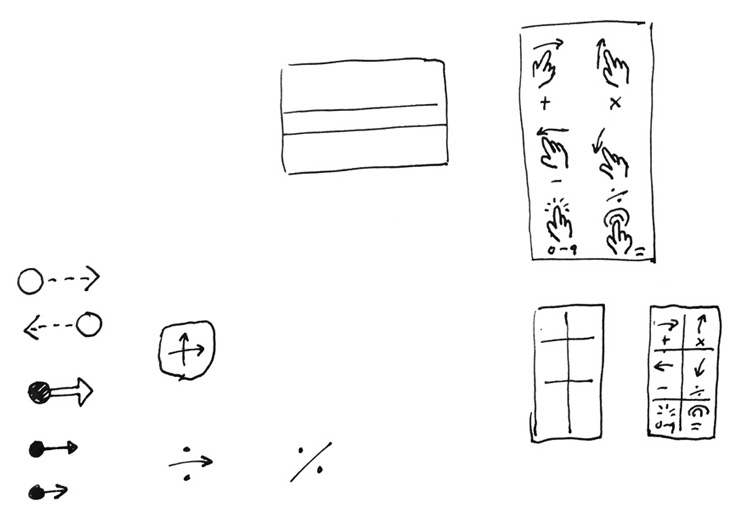 + ×
− ÷
0-9 =
+ ×
− ÷
0-9 =
÷ ٪